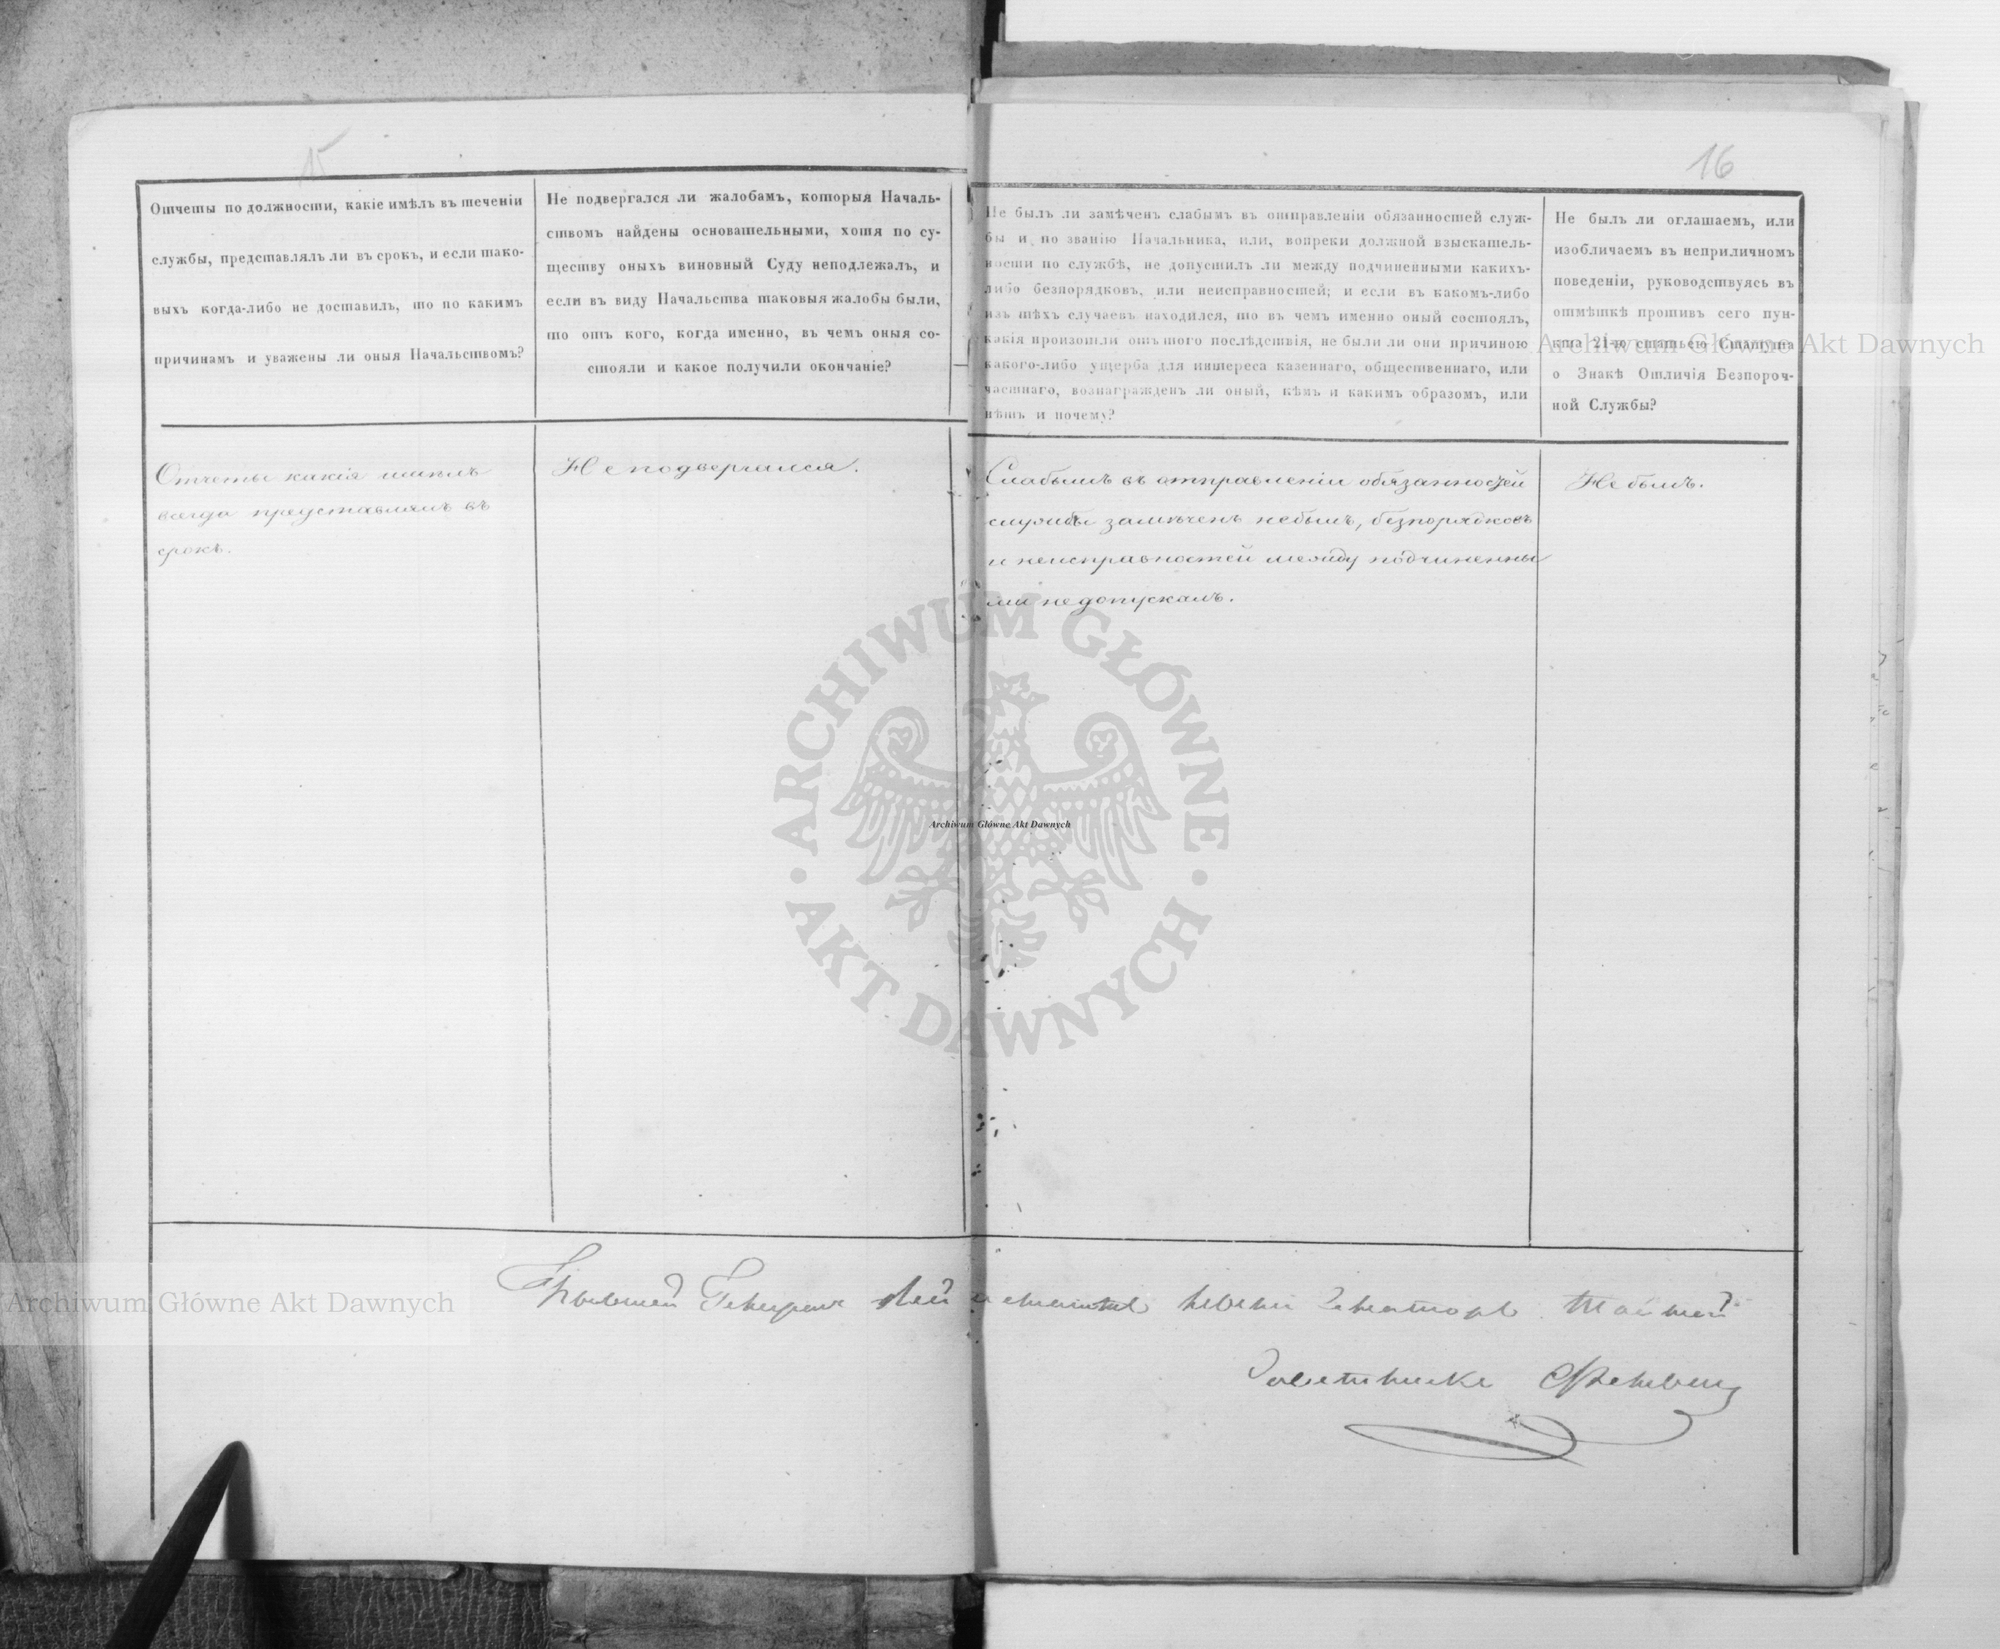 15
16
Отчеты по должности, какіе имѣлъ въ теченіи
службы, представлялъ ли въ срокъ, и если тако-
выхъ когда-либо не доставилъ, то по какимъ
причинамъ и уважены ли оныя Начальствомъ?
Не подвергался ли жалобамъ, которыя Началь-
ствомъ найдены основательными, хотя по су-
ществу оныхъ виновный Суду неподлежалъ, и
если въ виду Начальства таковыя жалобы были,
то отъ кого, когда именно, въ чемъ оныя со-
стояли и какое получили окончаніе?
Не былъ ли замѣченъ слабымъ въ отправленіи обязанностей служ-
бы и, по званію Начальника, или, вопреки должной взыскатель-
ности по службѣ, не допустилъ ли между подчиненными какихъ-
либо безпорядковъ, или неисправностей; и если въ какомъ-либо
изъ тѣхъ случаевъ находился, то въ чемъ именно оный состоялъ,
какія произошли отъ того послѣдствія, не были ли они причиною
какого-либо ущерба для интереса казеннаго, общественнаго, или
частнаго, вознагражденъ ли оный, кѣмъ и какимъ образомъ, или
нѣтъ и почему?
Не былъ ли оглашаемъ, или
изобличаемъ въ неприличномъ
поведеніи, руководствуясь въ
отмѣткѣ противъ сего пун-
кта 21-ю статьею Статута
о Знакѣ Отличія Безпороч-
ной Службы?
Отчеты какія имѣлъ
всегда представлялъ въ
срокъ.
Не подвергался.
Слабымъ въ отправленіи обязанностей
службы замѣченъ небылъ, безпорядковъ
и неисправностей между подчиненны
ми недопускалъ.
Не былъ.
Генералъ Лейтенантъ Сенаторъ Тайный
Совѣтникъ
Archiwum Główne Akt Dawnych
Archiwum Główne Akt Dawnych
Archiwum Główne Akt Dawnych
ARCHIWUM GŁÓWNE
AKT DAWNYCH